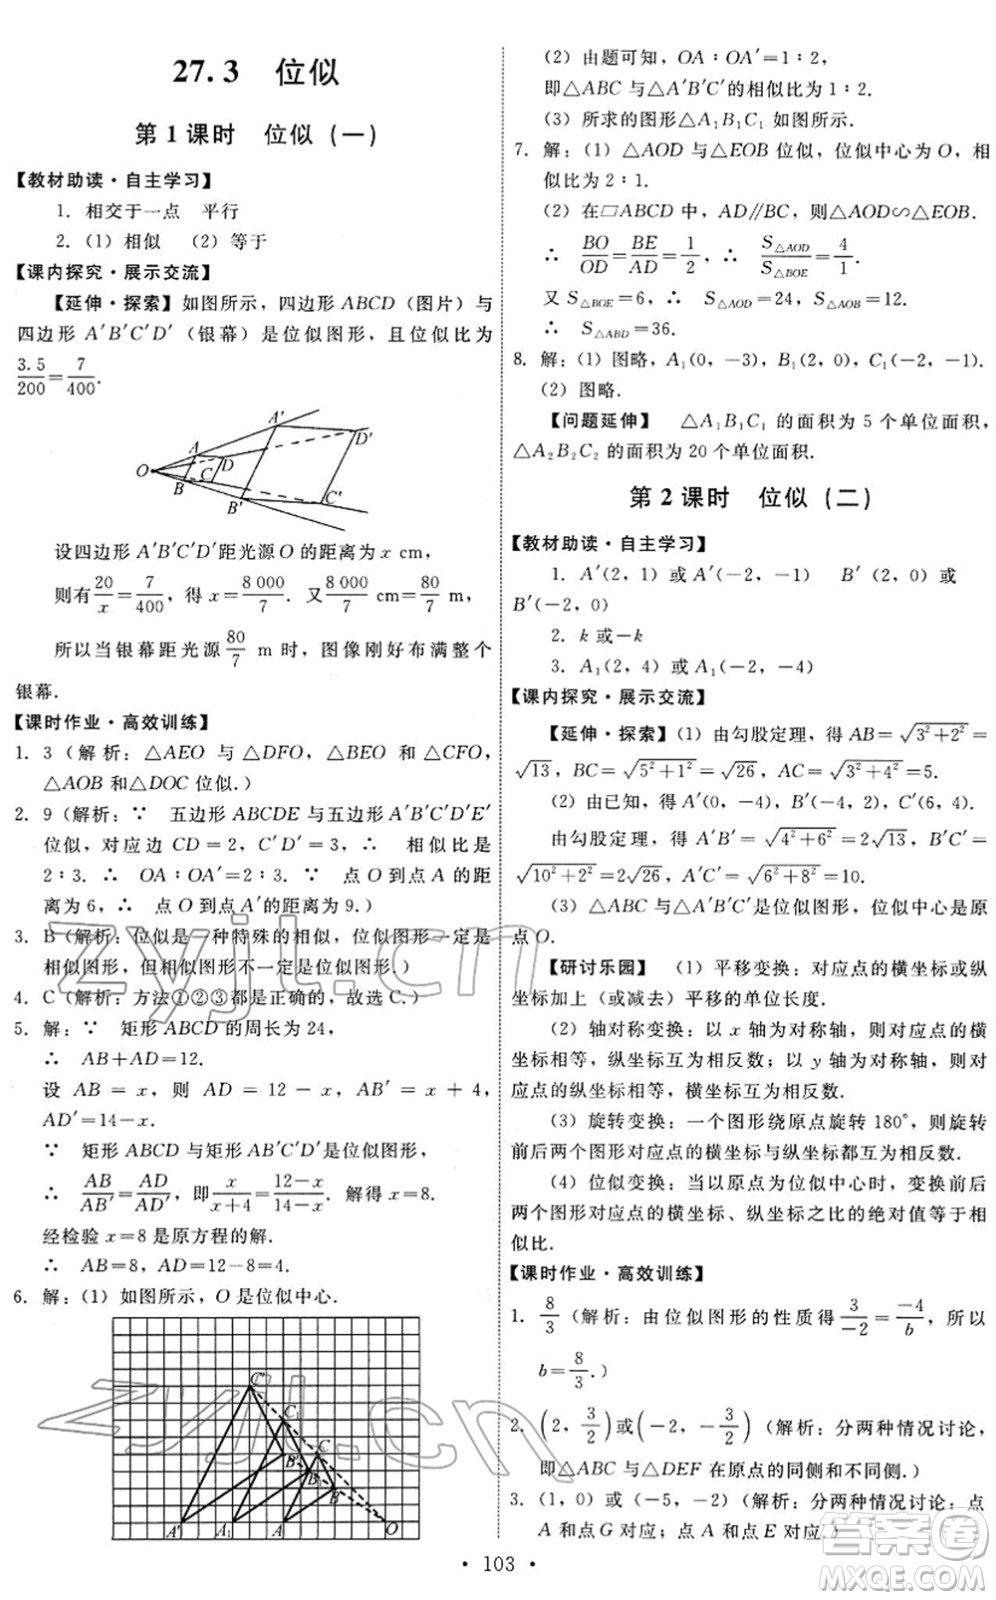 27.3 位似
第1课时 位似(一)
【教材助读·自主学习】
1. 相交于一点 平行
2.(1)相似 (2)等于
【课内探究·展示交流】
【延伸·探索】如图所示,四边形ABCD(图片)与
四边形A′B′C′D′(银幕)是位似图形,且位似比为
3.5/200=7/400.
A′
D′
A
D
O
C
B
B′
C′
设四边形A′B′C′D′距光源O的距离为x cm,
则有20/x=7/400,得x=8 000/7.又8 000/7 cm=80/7 m,
所以当银幕距光源80/7 m时,图像刚好布满整个
银幕.
【课时作业·高效训练】
1. 3(解析:△AEO与△DFO,△BEO和△CFO,
△AOB和△DOC位似.)
2. 9(解析:∵ 五边形ABCDE与五边形A′B′C′D′E′
位似,对应边CD=2,C′D′=3,∴ 相似比是
2∶3.∴ OA∶OA′=2∶3.∵ 点O到点A的距
离为6,∴ 点O到点A′的距离为9.)
3. B(解析:位似是一种特殊的相似,位似图形一定是
相似图形,但相似图形不一定是位似图形.)
4. C(解析:方法①②③都是正确的,故选C.)
5. 解:∵ 矩形ABCD的周长为24,
∴ AB+AD=12.
设AB=x,则AD=12-x,AB′=x+4,
AD′=14-x.
∵ 矩形ABCD与矩形AB′C′D′是位似图形,
∴ AB/AB′=AD/AD′,即x/(x+4)=(12-x)/(14-x).解得x=8.
经检验x=8是原方程的解.
∴ AB=8,AD=12-8=4.
6. 解:(1)如图所示,O是位似中心.
C′
C₁
C
B′
B₁
B
A′ A₁ A O
(2)由题可知,OA∶OA′=1∶2,
即△ABC与△A′B′C′的相似比为1∶2.
(3)所求的图形△A₁B₁C₁如图所示.
7. 解:(1)△AOD与△EOB位似,位似中心为O,相
似比为2∶1.
(2)在▱ABCD中,AD∥BC,则△AOD∽△EOB.
∴ BO/OD=BE/AD=1/2,∴ S△AOD/S△BOE=4/1.
又S△BOE=6,∴ S△AOD=24,S△AOB=12.
∴ S△ABD=36.
8. 解:(1)图略,A₁(0,-3),B₁(2,0),C₁(-2,-1).
(2)图略.
【问题延伸】 △A₁B₁C₁的面积为5个单位面积,
△A₂B₂C₂的面积为20个单位面积.
第2课时 位似(二)
【教材助读·自主学习】
1. A′(2,1)或A′(-2,-1) B′(2,0)或
B′(-2,0)
2. k或-k
3. A₁(2,4)或A₁(-2,-4)
【课内探究·展示交流】
【延伸·探索】(1)由勾股定理,得AB=√(3²+2²)=
√13,BC=√(5²+1²)=√26,AC=√(3²+4²)=5.
(2)由已知,得A′(0,-4),B′(-4,2),C′(6,4).
由勾股定理,得A′B′=√(4²+6²)=2√13,B′C′=
√(10²+2²)=2√26,A′C′=√(6²+8²)=10.
(3)△ABC与△A′B′C′是位似图形,位似中心是原
点O.
【研讨乐园】 (1)平移变换:对应点的横坐标或纵
坐标加上(或减去)平移的单位长度.
(2)轴对称变换:以x轴为对称轴,则对应点的横
坐标相等,纵坐标互为相反数;以y轴为对称轴,则对
应点的纵坐标相等,横坐标互为相反数.
(3)旋转变换:一个图形绕原点旋转180°,则旋转
前后两个图形对应点的横坐标与纵坐标都互为相反数.
(4)位似变换:当以原点为位似中心时,变换前后
两个图形对应点的横坐标、纵坐标之比的绝对值等于相
似比.
【课时作业·高效训练】
1. 8/3(解析:由位似图形的性质得3/-2=-4/b,所以
b=8/3.)
2. (2,3/2)或(-2,-3/2)(解析:分两种情况讨论,
即△ABC与△DEF在原点的同侧和不同侧.)
3. (1,0)或(-5,-2)(解析:分两种情况讨论:点
A和点G对应;点A和点E对应.)
·103·
zyjl.cn
zyjl.cn
答案圈
MXQE.COM